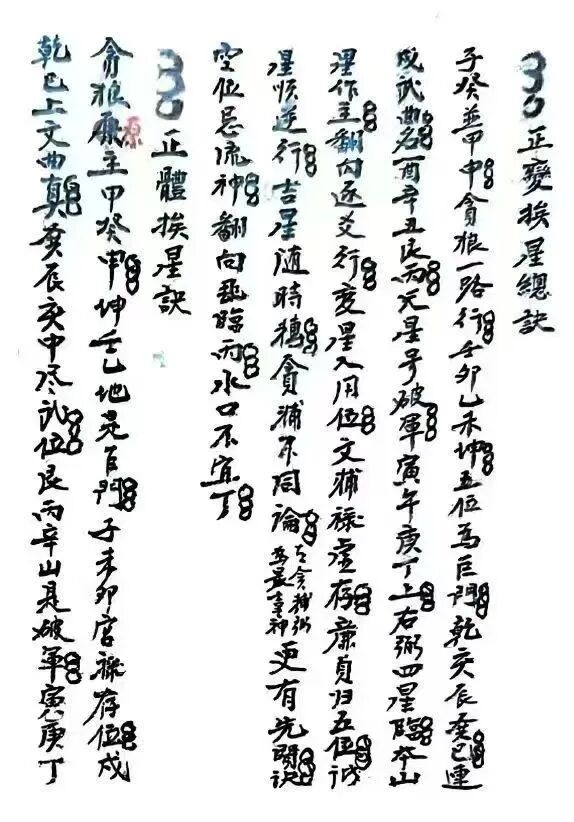 正變挨星總訣
子癸並甲申貪狼一路行壬卯乙未坤五位為巨門乾亥辰巽巳連
戌武曲名酉辛丑艮丙天星号破軍寅午庚丁上右弼四星臨本山
星作主翻向逐爻行変星入用位文補祿虛存廉貞归五位诚
星順逆行吉星随時穂貪補不同論左貪補弼為最幸神更有先開訣
空位忌流神翻向飛臨丙水口不宜丁
正體挨星訣
貪狼原主甲癸申坤壬乙地是巨門子未卯宮祿存位戌
乾巳上文曲真巽辰亥中尽武位艮丙辛山是破軍寅庚丁